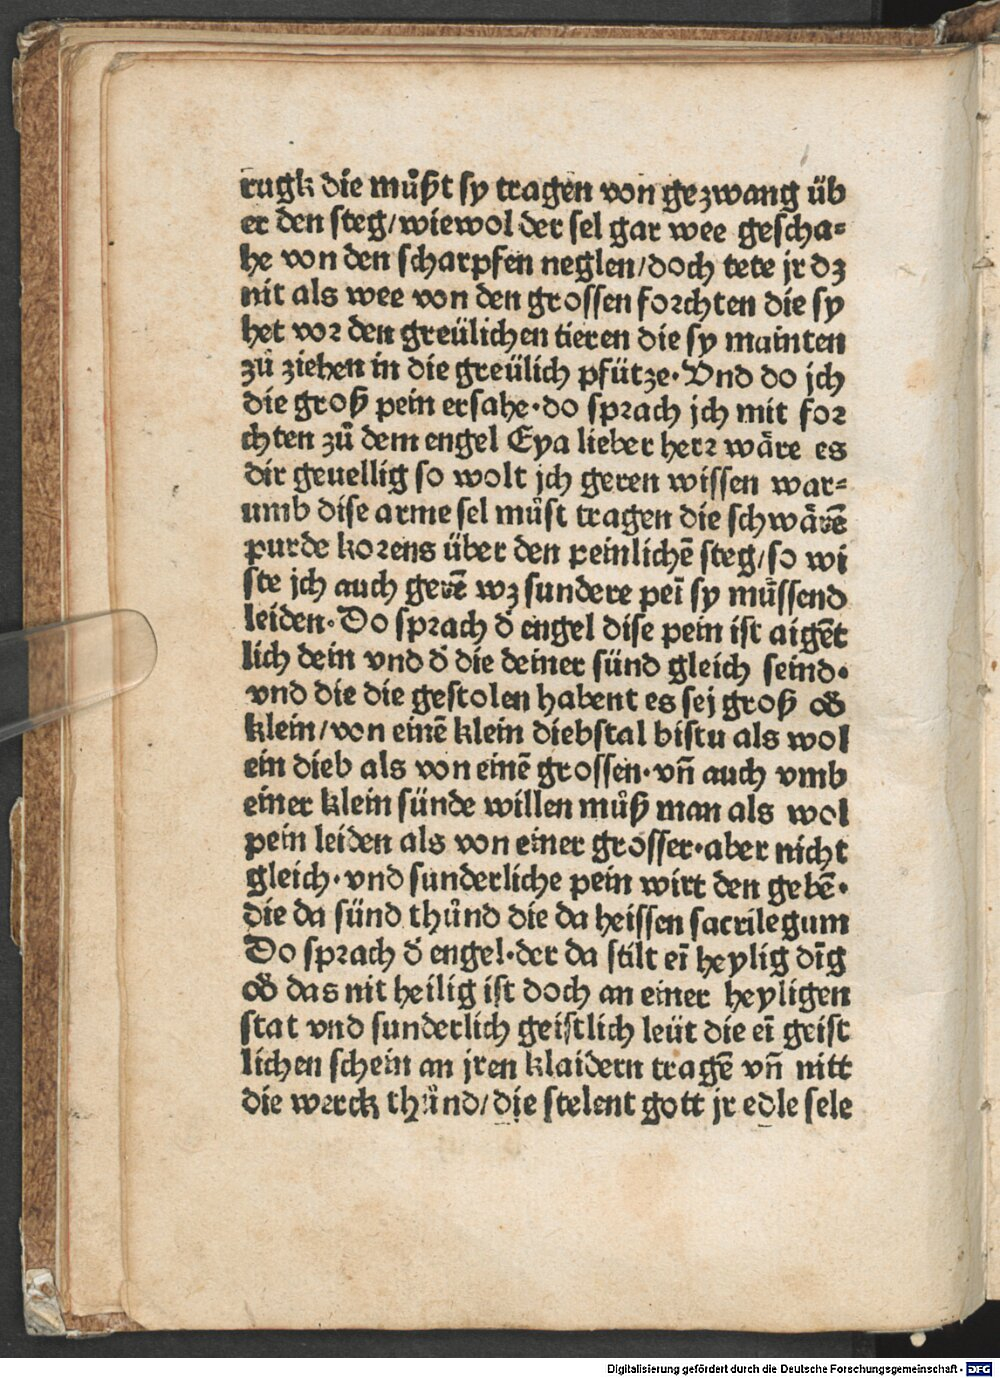 rugk die muͦßt sy tragen von gezwang üb
er den steg/wiewol der sel gar wee gescha⸗
he von den scharpfen neglen/doch tete jr dz
nit als wee von den grossen forchten die sy
het vor den greülichen tieren die sy mainten
zuͦ ziehen in die greülich pfütze. Vnd do jch
die groß pein ersahe. do sprach jch mit for
chten zuͦ dem engel Eya lieber herr wäre es
dir geuellig so wolt jch geren wissen war⸗
umb dise arme sel muͦst tragen die schwärē
purde korens über den peinlichē steg/so wi
ste jch auch gerē wz sundere peī sy muͤssend
leiden. Do sprach d̄ engel dise pein ist aigēt
lich dein vnd d̄ die deiner sünd gleich seind.
vnd die die gestolen habent es sej groß od̄
klein/von einē klein diebstal bistu als wol
ein dieb als von einē grossen. vn̄ auch vmb
einer klein sünde willen muͦß man als wol
pein leiden als von einer grosser. aber nicht
gleich. vnd sunderliche pein wirt den gebē.
die da sünd thuͦnd die da heissen sacrilegum
Do sprach d̄ engel. der da stilt eī heylig dīg
od̄ das nit heilig ist doch an einer heyligen
stat vnd sunderlich geistlich leüt die eī geist
lichen schein an jren klaidern tragē vn̄ nitt
die werck thuͦnd/die stelent gott jr edle sele
Digitalisierung gefördert durch die Deutsche Forschungsgemeinschaft - DFG